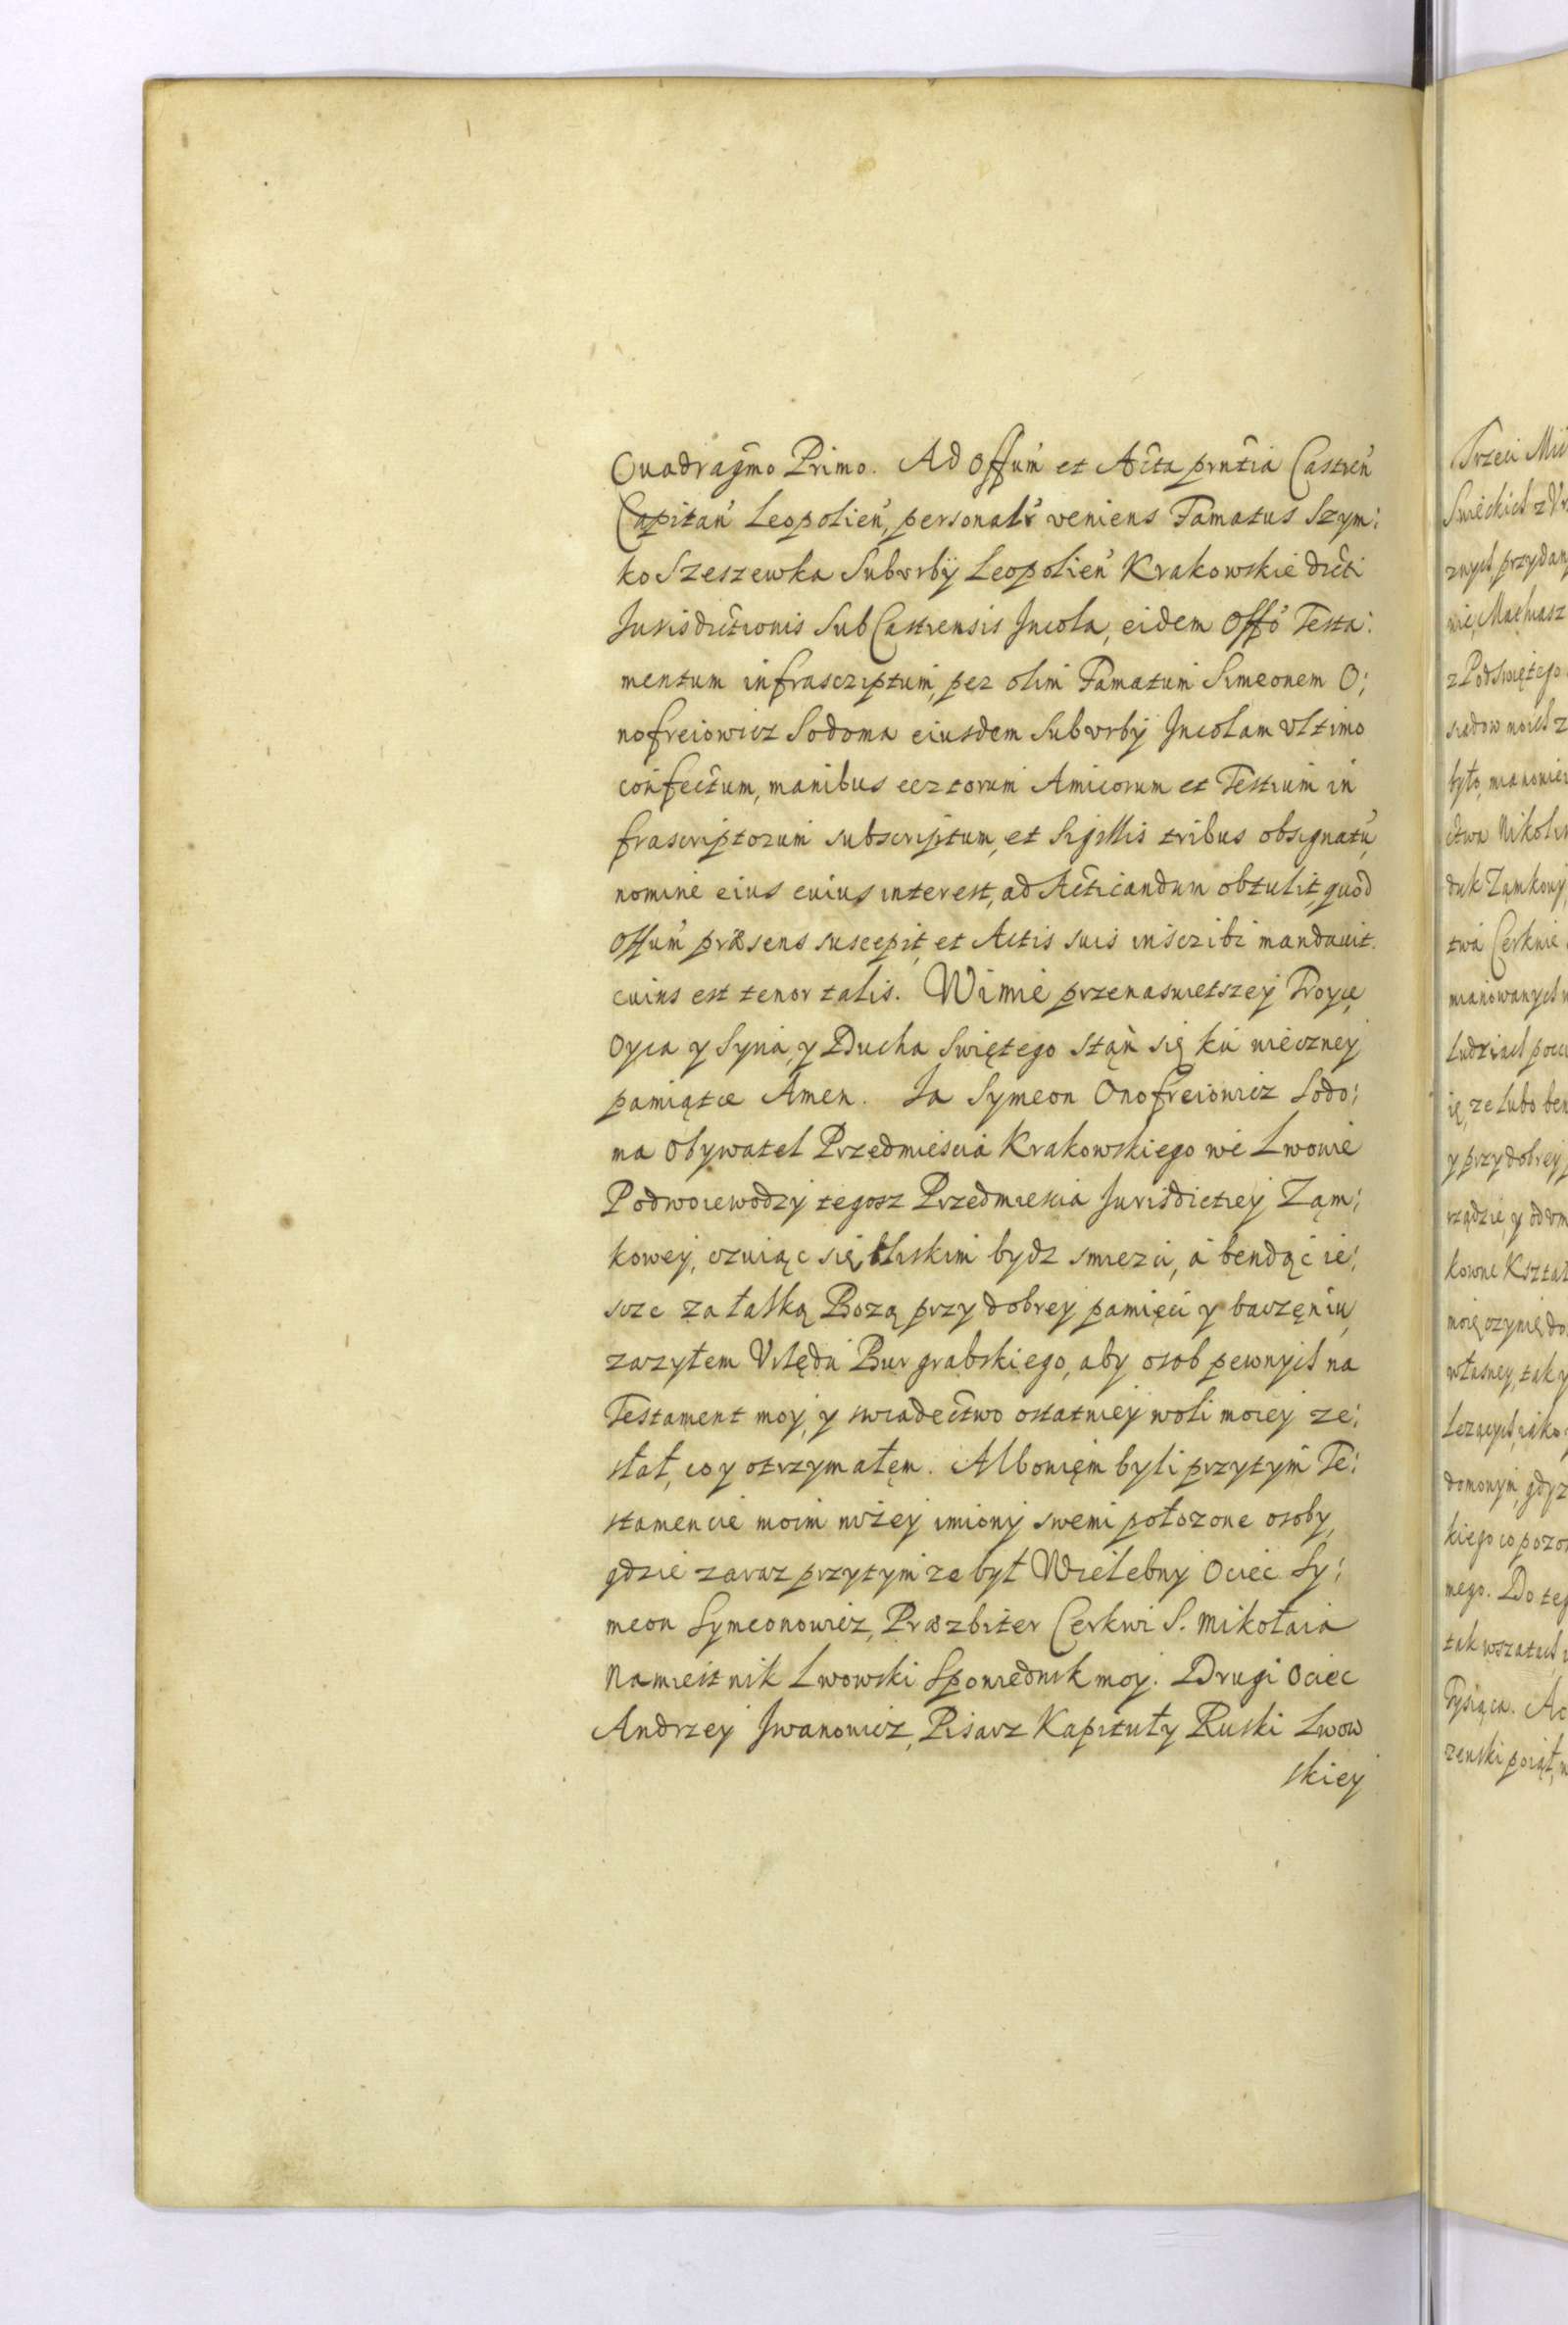 Quadragmo Primo. Ad Offum et Acta prntia Castren
Capitan Leopolien, personalr veniens Famatus Szym:
ko Szeszewka Suburbÿ Leopolien Krakowskie dicti
Jurisdictionis SubCastrensis Jncola, eidem Offo Testa:
mentum infrascriptum, per olim Famatum Simeonem O:
nofreiowicz Sodoma eiusdem Suburbÿ Jncolam Vltimo
confectum, manibus certorum Amicorum et Testium in
frascriptorum subscriptum, et Sigillis tribus obsignatu,
nomine eius cuius interest, ad Acticandum obtulit, quod
Offum præsens suscepit, et Actis suis inscribi mandauit.
cuius est tenor talis. W imie przenaswietszey Troyce
Oyca y Syna, y Ducha Swiętego stąn się ku wieczney
pamiątce Amen. Ja Symeon Onofreiowicz Sodo:
ma Obywatel Przedmiescia Krakowskiego we Lwowie
Podwoiewodzy tegosz Przedmiescia Jurisdictiey Ząm:
kowey, czuiąc się bliskim bydz smierci, a bendąc ie:
scze za łaską Bozą przy dobrey pamięci y baczęniu,
zazyłem Vrzędu Burgrabskiego, aby osob pewnych na
Testament moy, y swiadectwo ostatniey woli moiey ze:
słał, co y otrzymałęm. Albowięm byli przytym Te:
stamencie moim nizey imiony swemi połozone osoby,
gdzie zaraz przytym ze był Wielebny Ociec Sy:
meon Symeonowicz, Præzbiter Cerkwi S. Mikołaia
Namiestnik Lwowski Spowiednik moy. Drugi Ociec
Andrzey Jwanowicz, Pisarz Kapituły Ruski Lwow
skiey
Trzeci
znych przydan
z Pod Swiętego
było, mianowic
ctwa Nikolin
duk Zamkowy,
twa Cerkwie
mianowanych
y przy dobrey
własney, tak y
mego. Do teg
Tysiąca. Ac